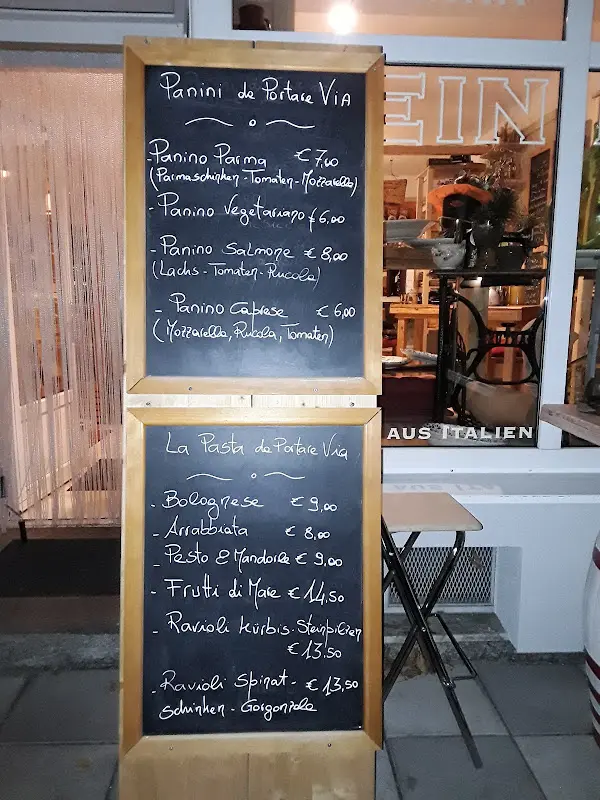 Panini da Portare Via
- Panino Parma € 7,00
(Parmaschinken - Tomaten - Mozzarella)
- Panino Vegetariano € 6,00
- Panino Salmone € 8,00
(Lachs - Tomaten - Rucola)
- Panino Caprese € 6,00
(Mozzarella, Rucola, Tomaten)
La Pasta da Portare Via
- Bolognese € 9,00
- Arrabbiata € 8,00
- Pesto e Mandorle € 9,00
- Frutti di Mare € 14,50
- Ravioli Kürbis - Steinpilzen
€ 13,50
- Ravioli Spinat - € 13,50
Schinken - Gorgonzola
EIN
AUS ITALIEN